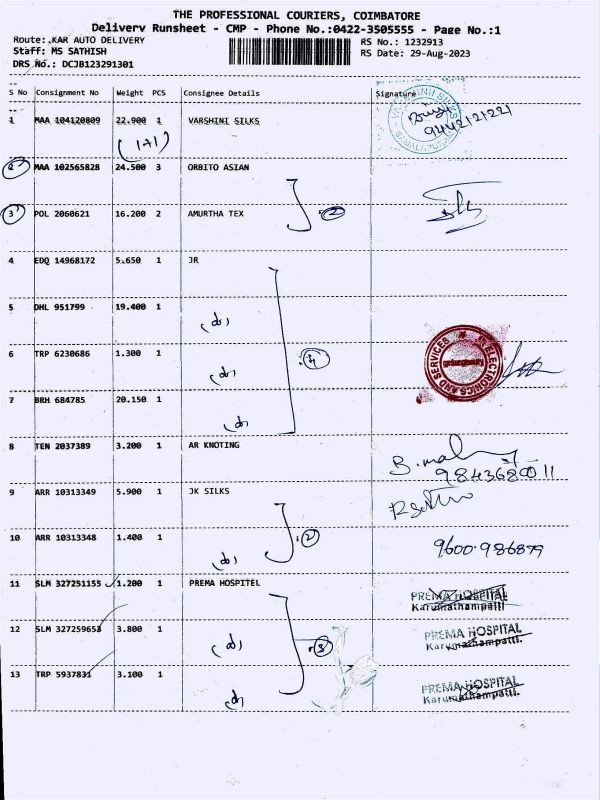 THE PROFESSIONAL COURIERS, COIMBATORE
Delivery Runsheet - CMP - Phone No.:0422-3505555 - Page No.:1
Route: KAR AUTO DELIVERY
RS No.: 1232913
Staff: MS SATHISH
RS Date: 29-Aug-2023
DRS No.: DCJB123291301
S No Consignment No Weight PCS Consignee Details Signature
1 MAA 104120809 22.900 1 VARSHINI SILKS
9442121221
(1+1)
2 MAA 102565828 24.500 3 ORBITO ASIAN
3 POL 2060621 16.200 2 AMURTHA TEX
2
4 EDQ 14968172 5.650 1 JR
5 DHL 951799 19.400 1
(do)
6 TRP 6230686 1.300 1
4
ELECTRONICS AND SERVICES
(do)
7 BRH 684785 20.150 1
(do)
8 TEN 2037389 3.200 1 AR KNOTING
9843680011
9 ARR 10313349 5.900 1 JK SILKS
10 ARR 10313348 1.400 1
2
(do)
11 SLM 327251155 1.200 1 PREMA HOSPITEL
PREMA HOSPITAL
Karumathampatti
12 SLM 327259653 3.800 1
(do)
3
PREMA HOSPITAL
Karumathampatti.
13 TRP 5937831 3.100 1
(do)
PREMA HOSPITAL
Karumathampatti.